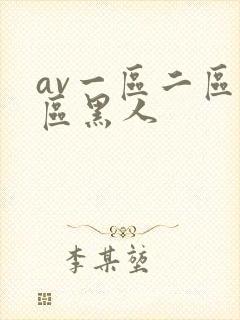 av一區二區
區黑人
李某堃